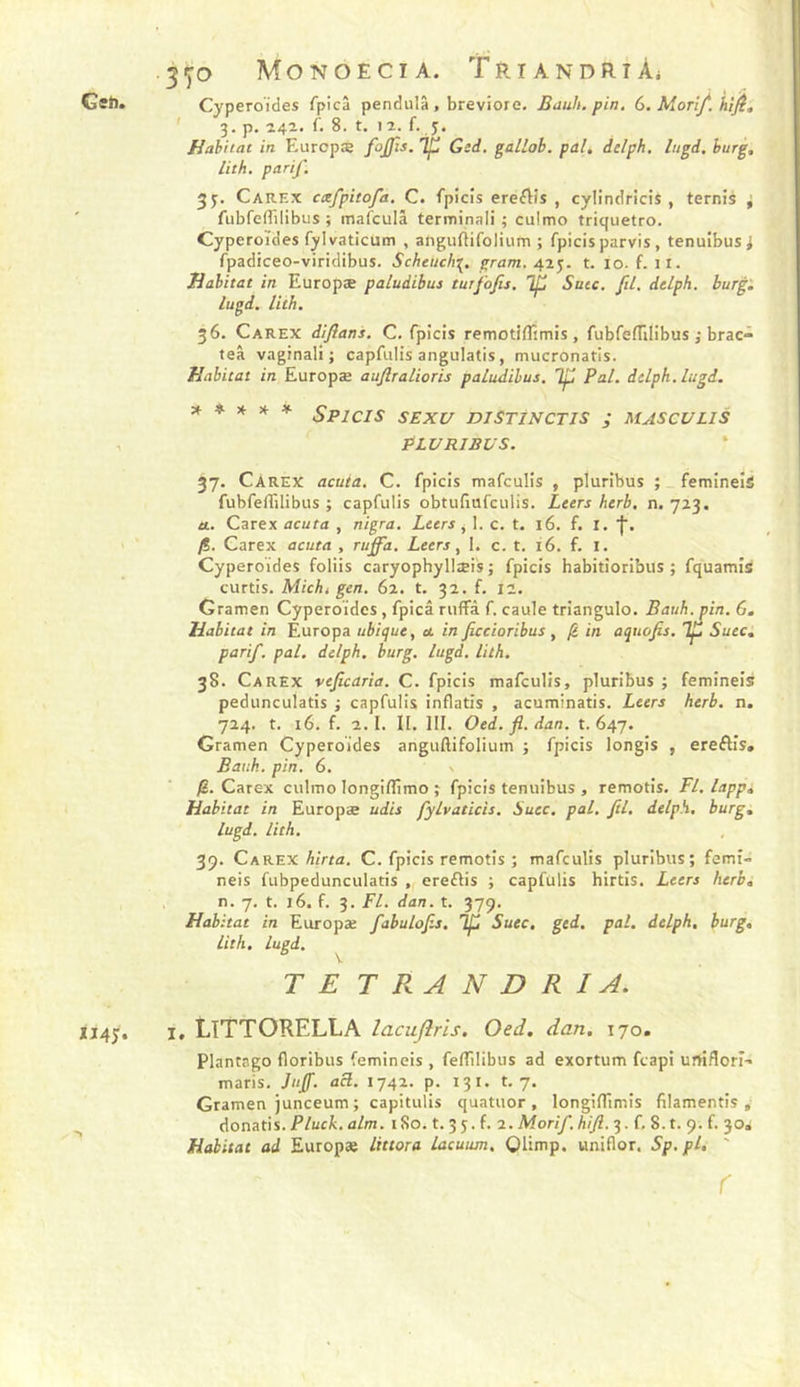 350 MONOECIA. TRIANDRIA.
Gen. Cyperoïdes ſpicâ pendulâ, breviore. Bauh. pin. 6. Moriſ. hiſt.
3. p. 242. ſ. 8. t. 12. f. 5.
Habitat in Europæ foſſis. ♃ Ged. gallob. pal. delph. lugd. burg.
lith. pariſ.
35. CAREX cæſpitoſa. C. ſpicis erectis, cylindricis, ternis,
ſubſeſſilibus; maſculâ terminali; culmo triquetro.
Cyperoïdes ſylvaticum, anguſtifolium; ſpicis parvis, tenuibus;
ſpadiceo-viridibus. Scheuchz. gram. 425. t. 10. f. 11.
Habitat in Europæ paludibus turfoſis. ♃ Suec. ſil. delph. burg.
lugd. lith.
36. CAREX diſtans. C. ſpicis remotiſſimis, ſubſeſſilibus; brac-
teâ vaginali; capſulis angulatis, mucronatis.
Habitat in Europæ auſtralioris paludibus. ♃ Pal. delph. lugd.
* * * * * SPICIS SEXU DISTINCTIS; MASCULIS
PLURIBUS.
37. CAREX acuta. C. ſpicis maſculis, pluribus; femineis
ſubſeſſilibus; capſulis obtuſiuſculis. Leers herb. n. 723.
α. Carex acuta, nigra. Leers, l. c. t. 16. f. 1. †.
β. Carex acuta, ruffa. Leers, l. c. t. 16. f. 1.
Cyperoïdes foliis caryophyllæis; ſpicis habitioribus; ſquamis
curtis. Mich. gen. 62. t. 32. f. 12.
Gramen Cyperoïdes, ſpicâ ruffâ ſ. caule triangulo. Bauh. pin. 6.
Habitat in Europa ubique, α in ſiccioribus, β in aquoſis. ♃ Suec.
pariſ. pal. delph. burg. lugd. lith.
38. CAREX veſicaria. C. ſpicis maſculis, pluribus; femineis
pedunculatis; capſulis inflatis, acuminatis. Leers herb. n.
724. t. 16. f. 2. I. II. III. Oed. fl. dan. t. 647.
Gramen Cyperoïdes anguſtifolium; ſpicis longis, erectis.
Bauh. pin. 6.
β. Carex culmo longiſſimo; ſpicis tenuibus, remotis. Fl. lapp.
Habitat in Europæ udis ſylvaticis. Suec. pal. ſil. delph. burg.
lugd. lith.
39. CAREX hirta. C. ſpicis remotis; maſculis pluribus; femi-
neis ſubpedunculatis, erectis; capſulis hirtis. Leers herb.
n. 7. t. 16. f. 3. Fl. dan. t. 379.
Habitat in Europæ ſabuloſis. ♃ Suec. ged. pal. delph. burg.
lith. lugd.
TETRANDRIA.
1145. 1. LITTORELLA lacuſtris. Oed. dan. 170.
Plantago floribus femineis, ſeſſilibus ad exortum ſcapi uniflori-
maris. Juſſ. act. 1742. p. 131. t. 7.
Gramen junceum; capitulis quatuor, longiſſimis filamentis,
donatis. Pluck. alm. 180. t. 35. f. 2. Moriſ. hiſt. 3. ſ. 8. t. 9. f. 30.
Habitat ad Europæ littora lacuum. Olimp. uniflor. Sp. pl.